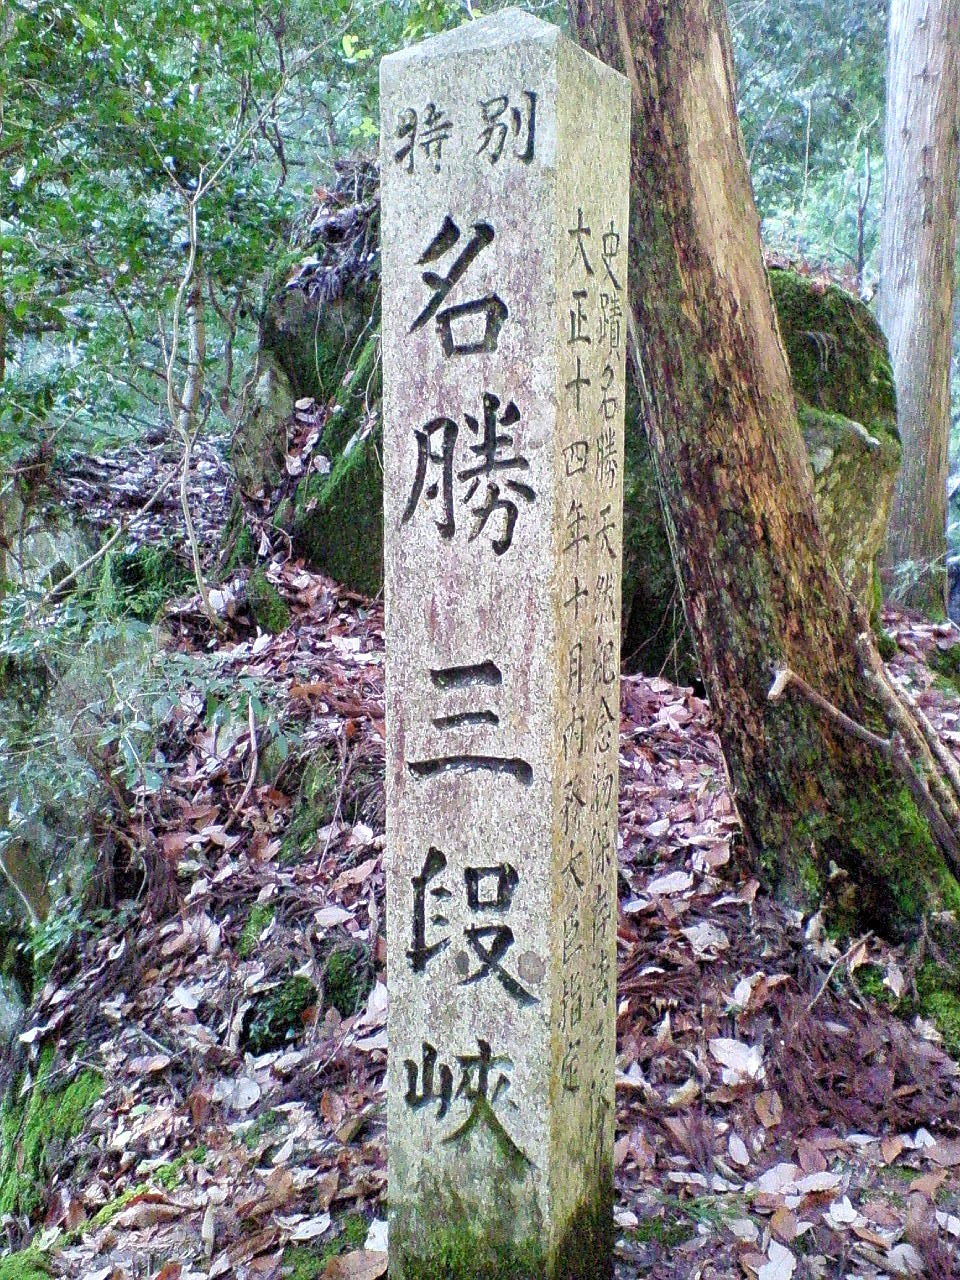 特別
名勝三段峽
史蹟名勝天然紀念物保存法
大正十四年十月内務大臣指定